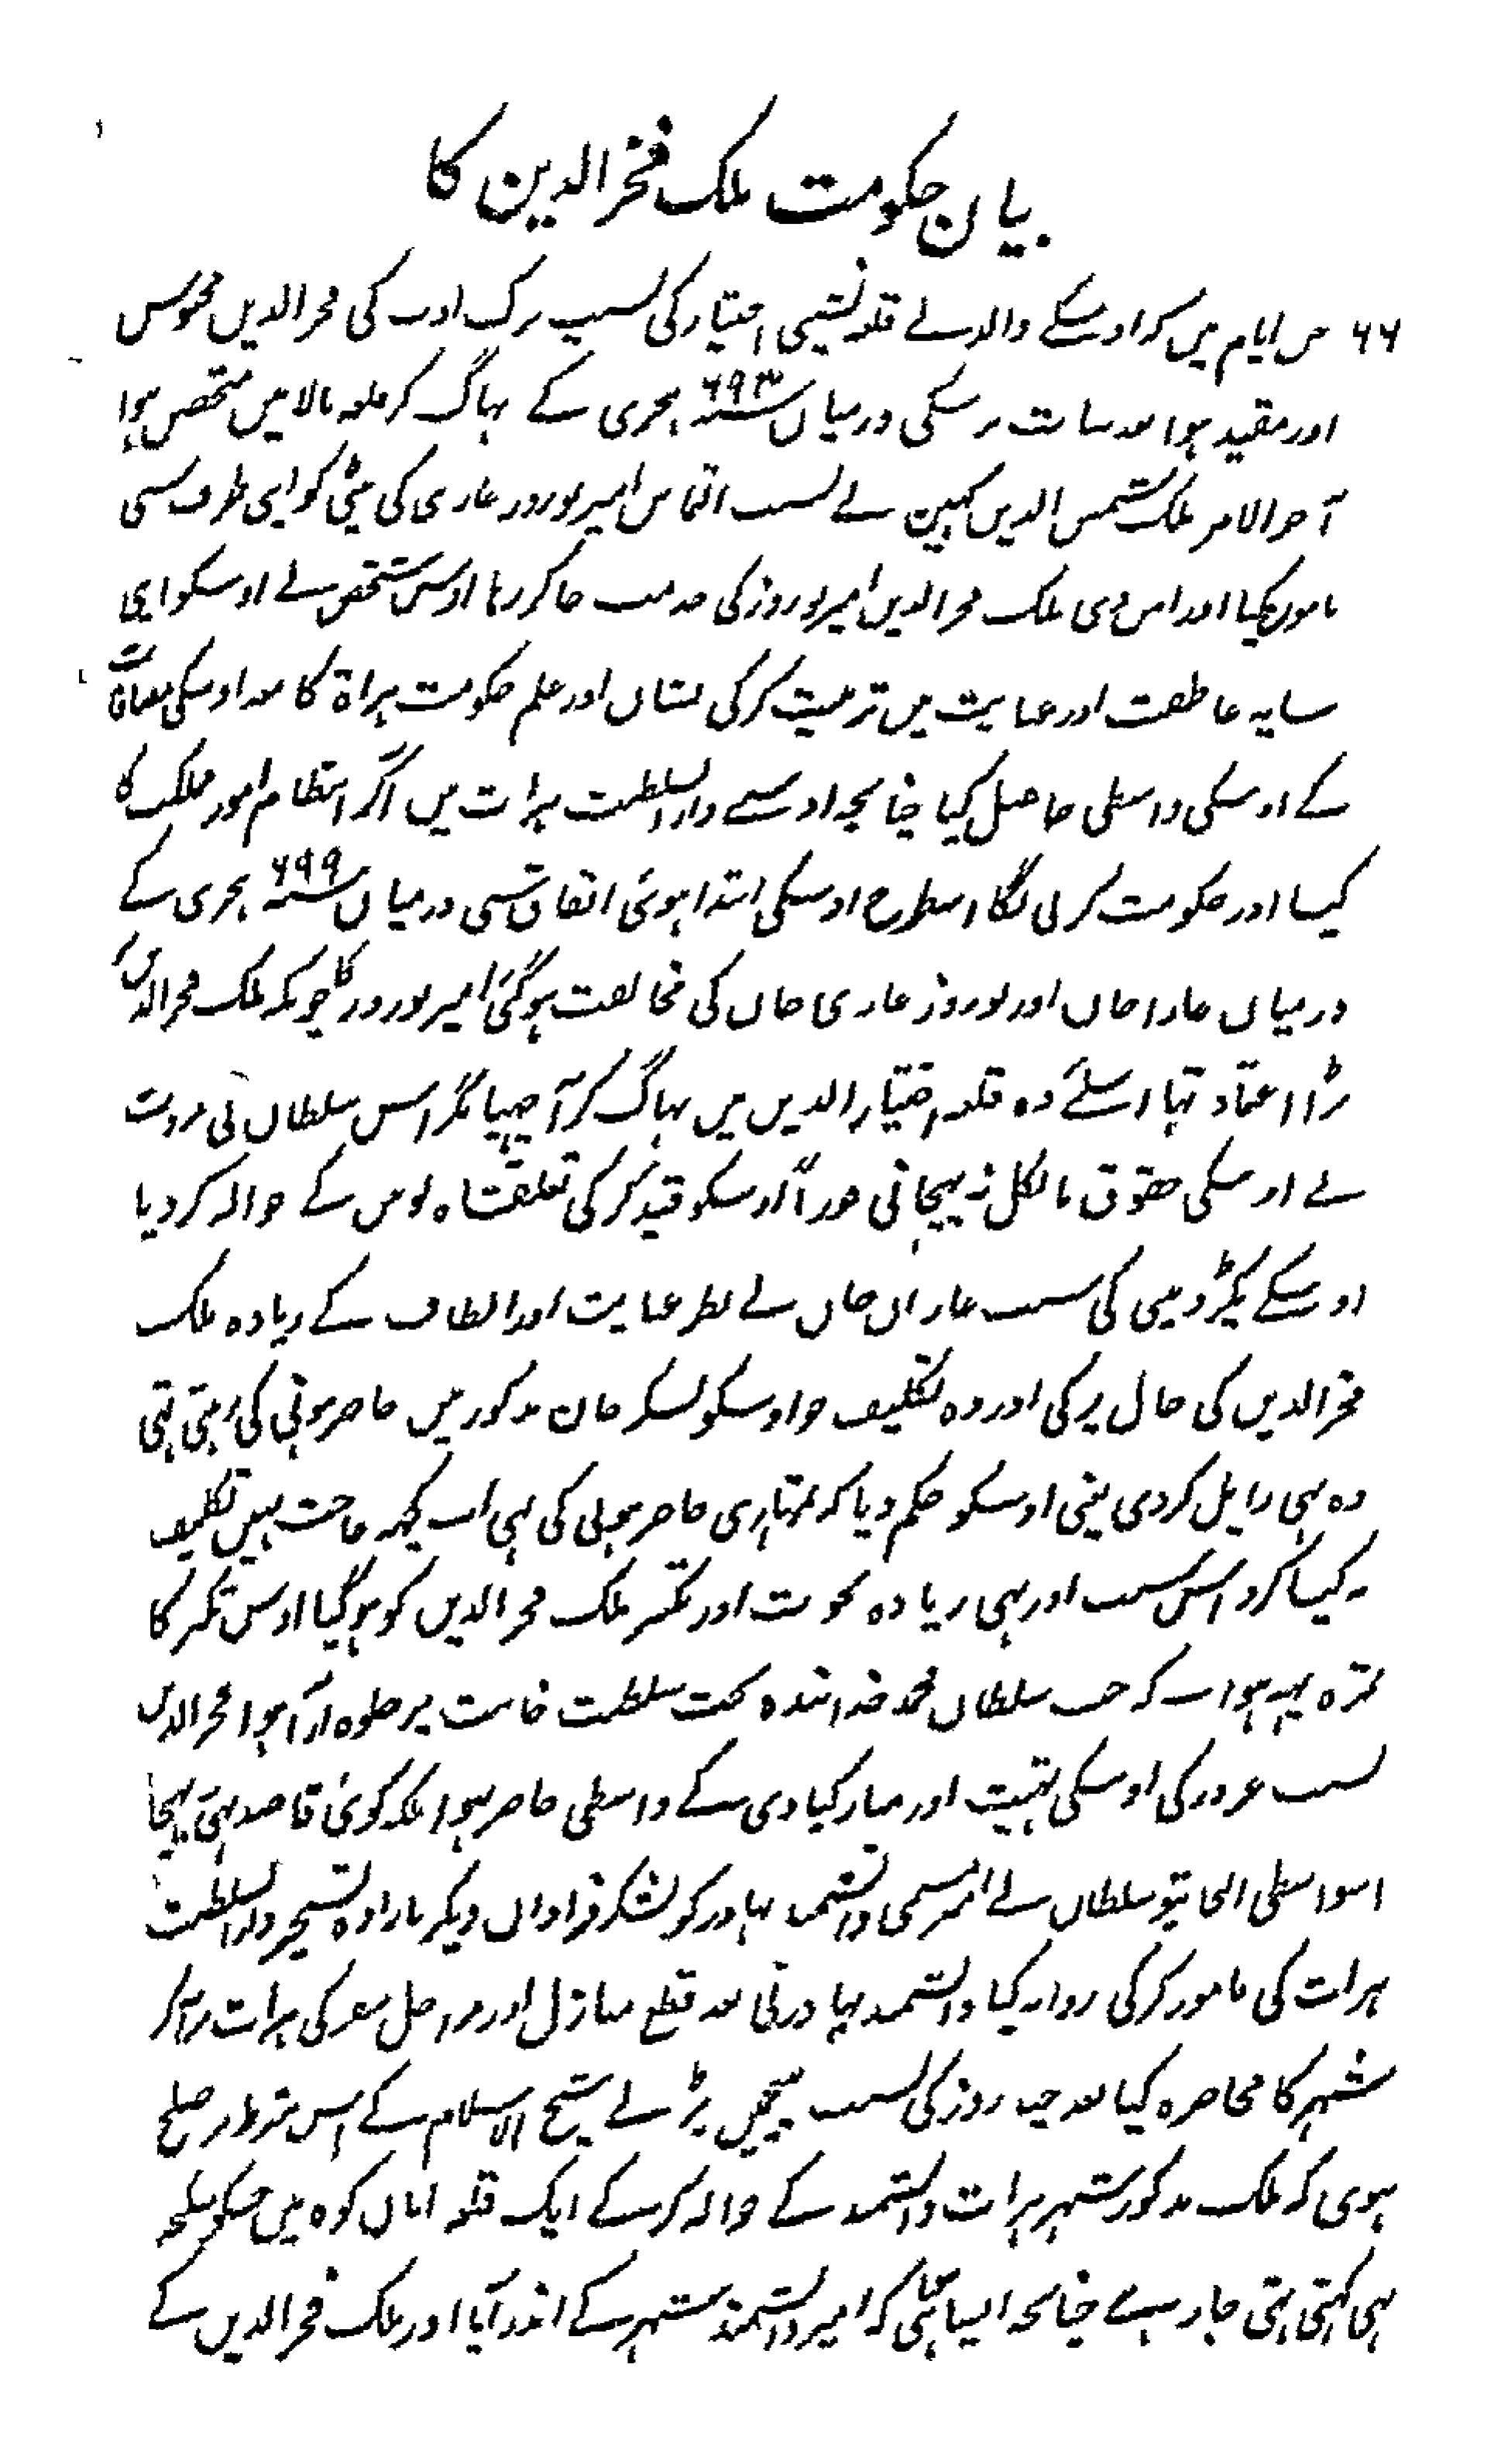 بیان حکومت ملک فخر الدین کا
۶۶ جس ایام میں کہ اوسکے والد نے قلعہ نشینی اختیار کی بسبب ترک ادب کی فخر الدین محبوس
اور مقید ہوا بعد سات برسکی درمیان سنہ ۶۹۳ ہجری کے بہاگ کر قلعہ بالا میں متحصن ہوا
آخر الامر ملک شمس الدین کہین نے بسبب التماس امیر نوروز غازی کی بیٹی کو اپنی طرف سی
مامون کیا اور ملک فخر الدین امیر نوروز کی خدمت جا کر رہا اوس شخص نے اوسکو اپنی
سایہ عاطفت اور عنایت میں تربیت کر کی نشان اور علم حکومت ہراۃ کا معہ اوسکی مضافات
کے اوسکی واسطی حاصل کیا چنانچہ اوسنے دار السلطنت ہرات میں آکر انتظام امور مملکت کا
کیا اور حکومت کرنی لگا اسطرح اوسکی ابتدا ہوئی اتفاق سی درمیان سنہ ۶۹۹ ہجری کے
درمیان غازان خان اور نوروز غازی خان کی مخالفت ہوگئی امیر نوروز کا چونکہ ملک فخر الدین پر
بڑا اعتماد تہا اسلئے وہ قلعہ اختیار الدین میں بہاگ کر آ چہپا مگر اس سلطان بی مروت
نے اوسکی حقوق بالکل نہ پہچانی فوراً اوسکو قید کر کی قتلقشاہ نویں کے حوالہ کر دیا
اوسکے پکڑ دینی کی سبب غازان خان نے نظر عنایت اور الطاف کے زیادہ ملک
فخر الدین کی حال پر کی اور وہ تکلیف جو اوسکو لشکر خان مذکور میں حاضر ہونی کی رہتی تہی
وہ بہی زایل کر دی یعنی اوسکو حکم دیا کہ تمہاری حاضر ہونی کی بہی اب کچہہ حاجت نہیں تکلیف
نہ کیا کرو اس سبب اور بہی زیادہ نخوت اور تکبر ملک فخر الدین کو ہوگیا اوس تکبر کا
ثمرہ یہہ ہوا کہ جب سلطان محمد خدابندہ تخت سلطنت خانیت پر جلوہ آرا ہوا فخر الدین
بسبب غرور کی اوسکی تہنیت اور مبارکبادی کے واسطی حاضر ہوا بلکہ کوئی قاصد بہی نہ بہیجا
اسواسطی الجایتو سلطان نے امیر مسمی دانشمند بہادر کو لشکر فراوان دیکر بارادہ تسخیر دار السلطنت
ہرات کی مامور کر کی روانہ کیا دانشمند بہادر نی بعد قطع منازل اور مراحل سفر کی ہرات پر آ کر
شہر کا محاصرہ کیا بعد چند روز کی بسبب بیچ میں پڑنے شیخ الاسلام کے اس شرط پر صلح
ہوی کہ ملک مذکور شہر ہرات دانشمند کے حوالہ کر کے ایک قلعہ امان کوہ میں جسکو سلحہ
بہی کہتی ہتی جا رہے چنانچہ ایسا ہی کیا کہ امیر دانشمند شہر کے اندر آیا اور ملک فخر الدین کے